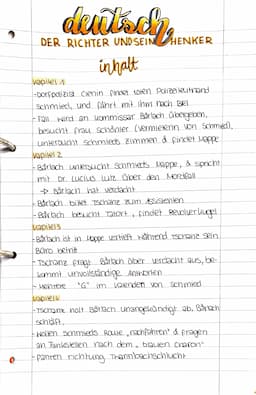 deutsch
DER RICHTER UND SEIN HENKER
inhalt
Kapitel 1
- Dorfpolizist Clenin findet toten Polizeileutnand
Schmied, und fährt mit ihm nach Biel
- Fall wird an Kommissar Bärlach übergeben,
besucht Frau Schönler (Vermieterin von Schmied),
untersucht Schmieds Zimmer & findet Mappe
Kapitel 2
- Bärlach untersucht Schmieds Mappe, & spricht
mit Dr. Lucius Lutz über den Mordfall
→ Bärlach hat Verdacht
- Bärlach bittet Tschanz zum Assistenten
- Bärlach besucht Tatort, findet Revolverkugel
Kapitel 3
- Bärlach ist in Mappe vertieft während Tschanz sein
Büro betritt
- Tschanz fragt Bärlach über Verdacht aus, be-
kommt unvollständige Antworten
- "G" im Kalender von Schmied
Kapitel 4
- Tschanz holt Bärlach unangekündigt ab, Bärlach
schläft,
- wollen Schmieds Route "nachfahren" & fragen
an Tankstellen nach dem "blauen Charon"
- fahren Richtung Twannbachschlucht